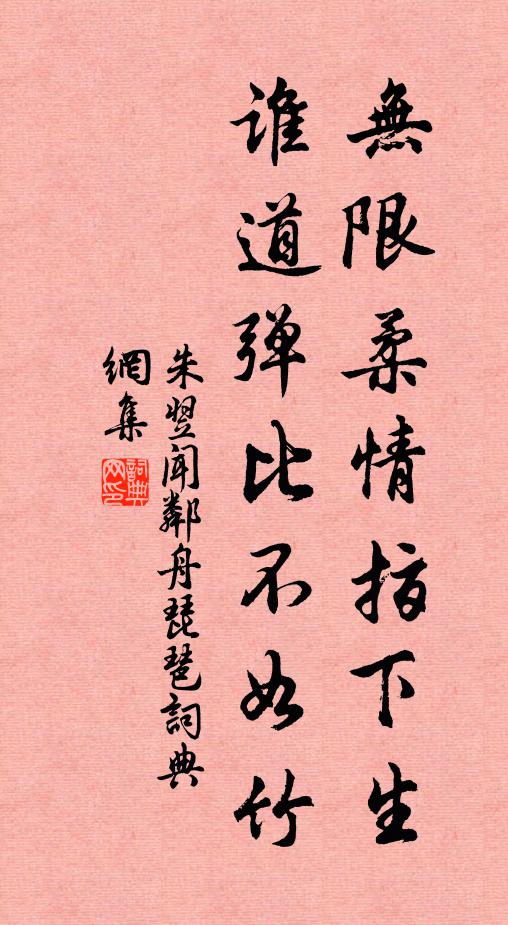 無限柔情指下生
誰道弹比不如竹
朱翌闻鄰舟琵琶詞典
網集
詞典
网印